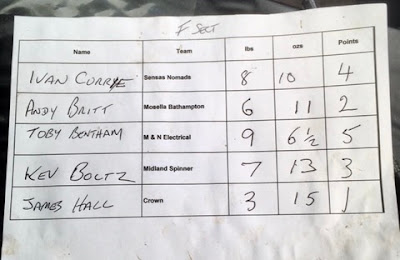 F SECT
Name Team lbs ozs Points
IVAN CURRYE Sensas Nomads 8 10 4
ANDY BRITT Mosella Bathampton 6 11 2
TOBY BENTHAM M & N Electrical 9 6 1/2 5
KEV BOLTZ Midland Spinner 7 13 3
JAMES HALL Crown 3 15 1